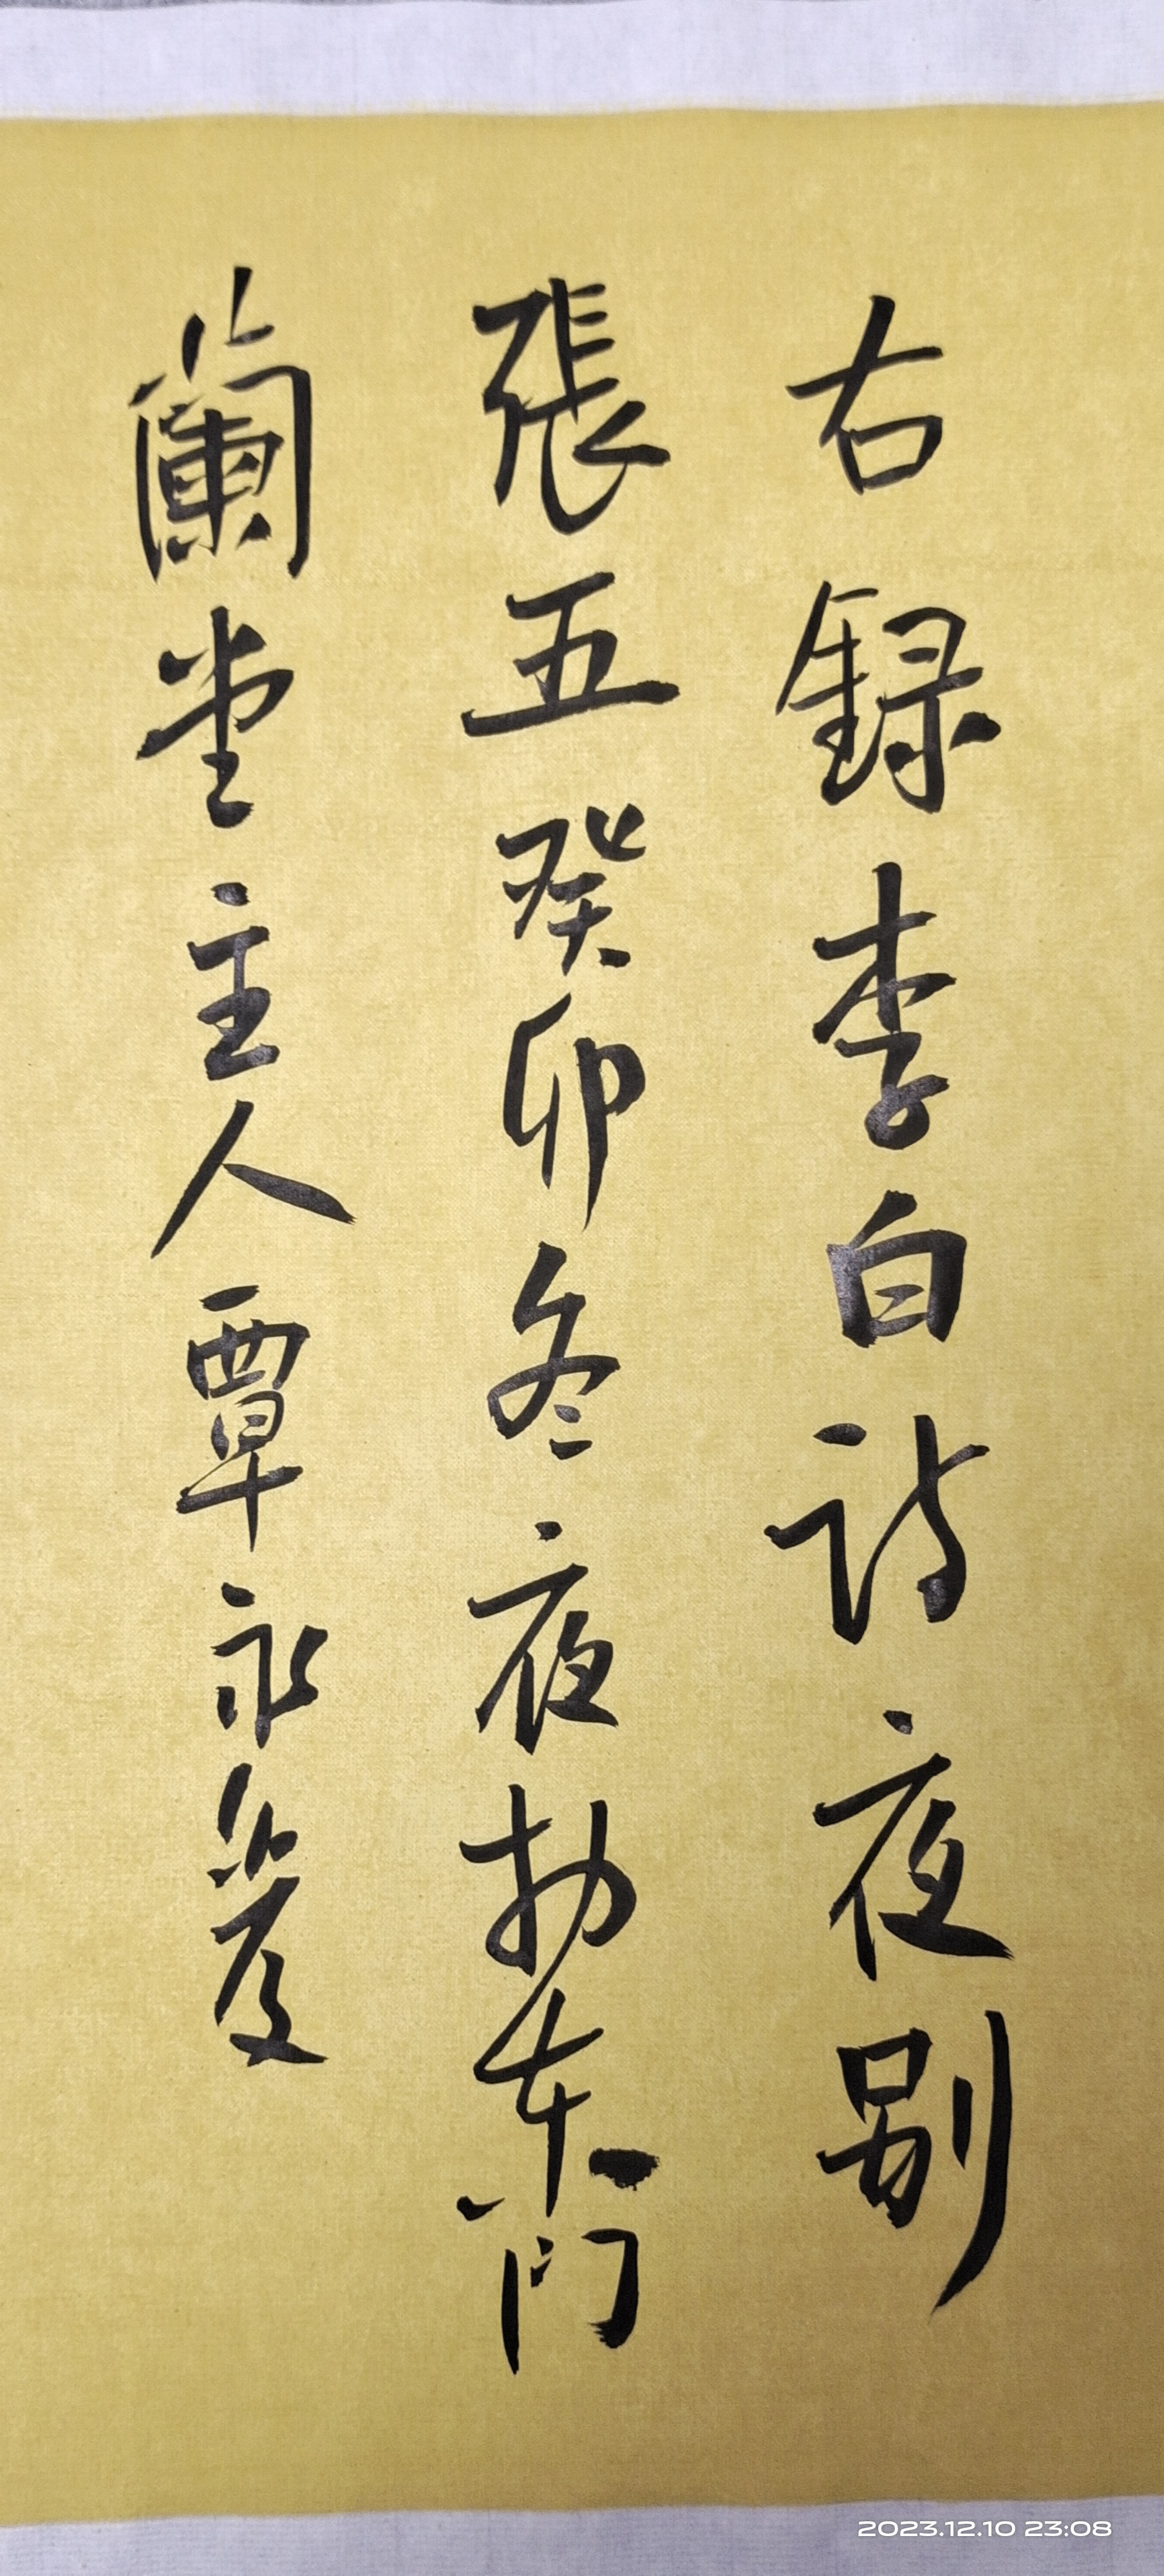 右録李白詩夜别
張五癸卯冬夜於東門
蘭堂主人覃永
2023.12.10 23:08